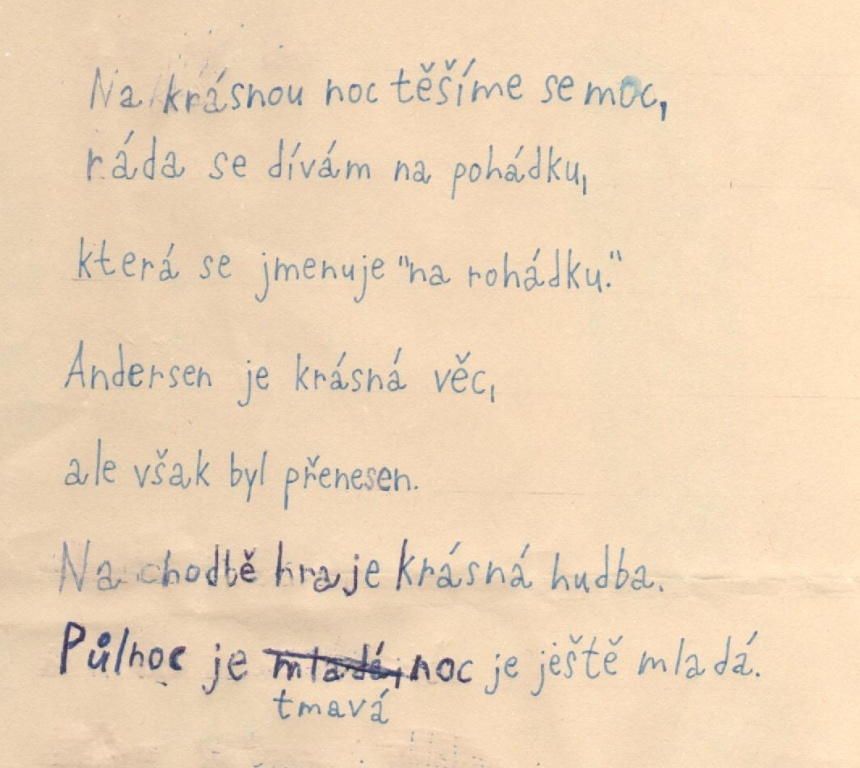 Na krásnou noc těšíme se moc,
ráda se dívám na pohádku,
která se jmenuje "na rohádku."
Andersen je krásná věc,
ale však byl přenesen.
Na chodbě hraje krásná hudba.
Půlnoc je mladá, noc je ještě mladá.
tmavá